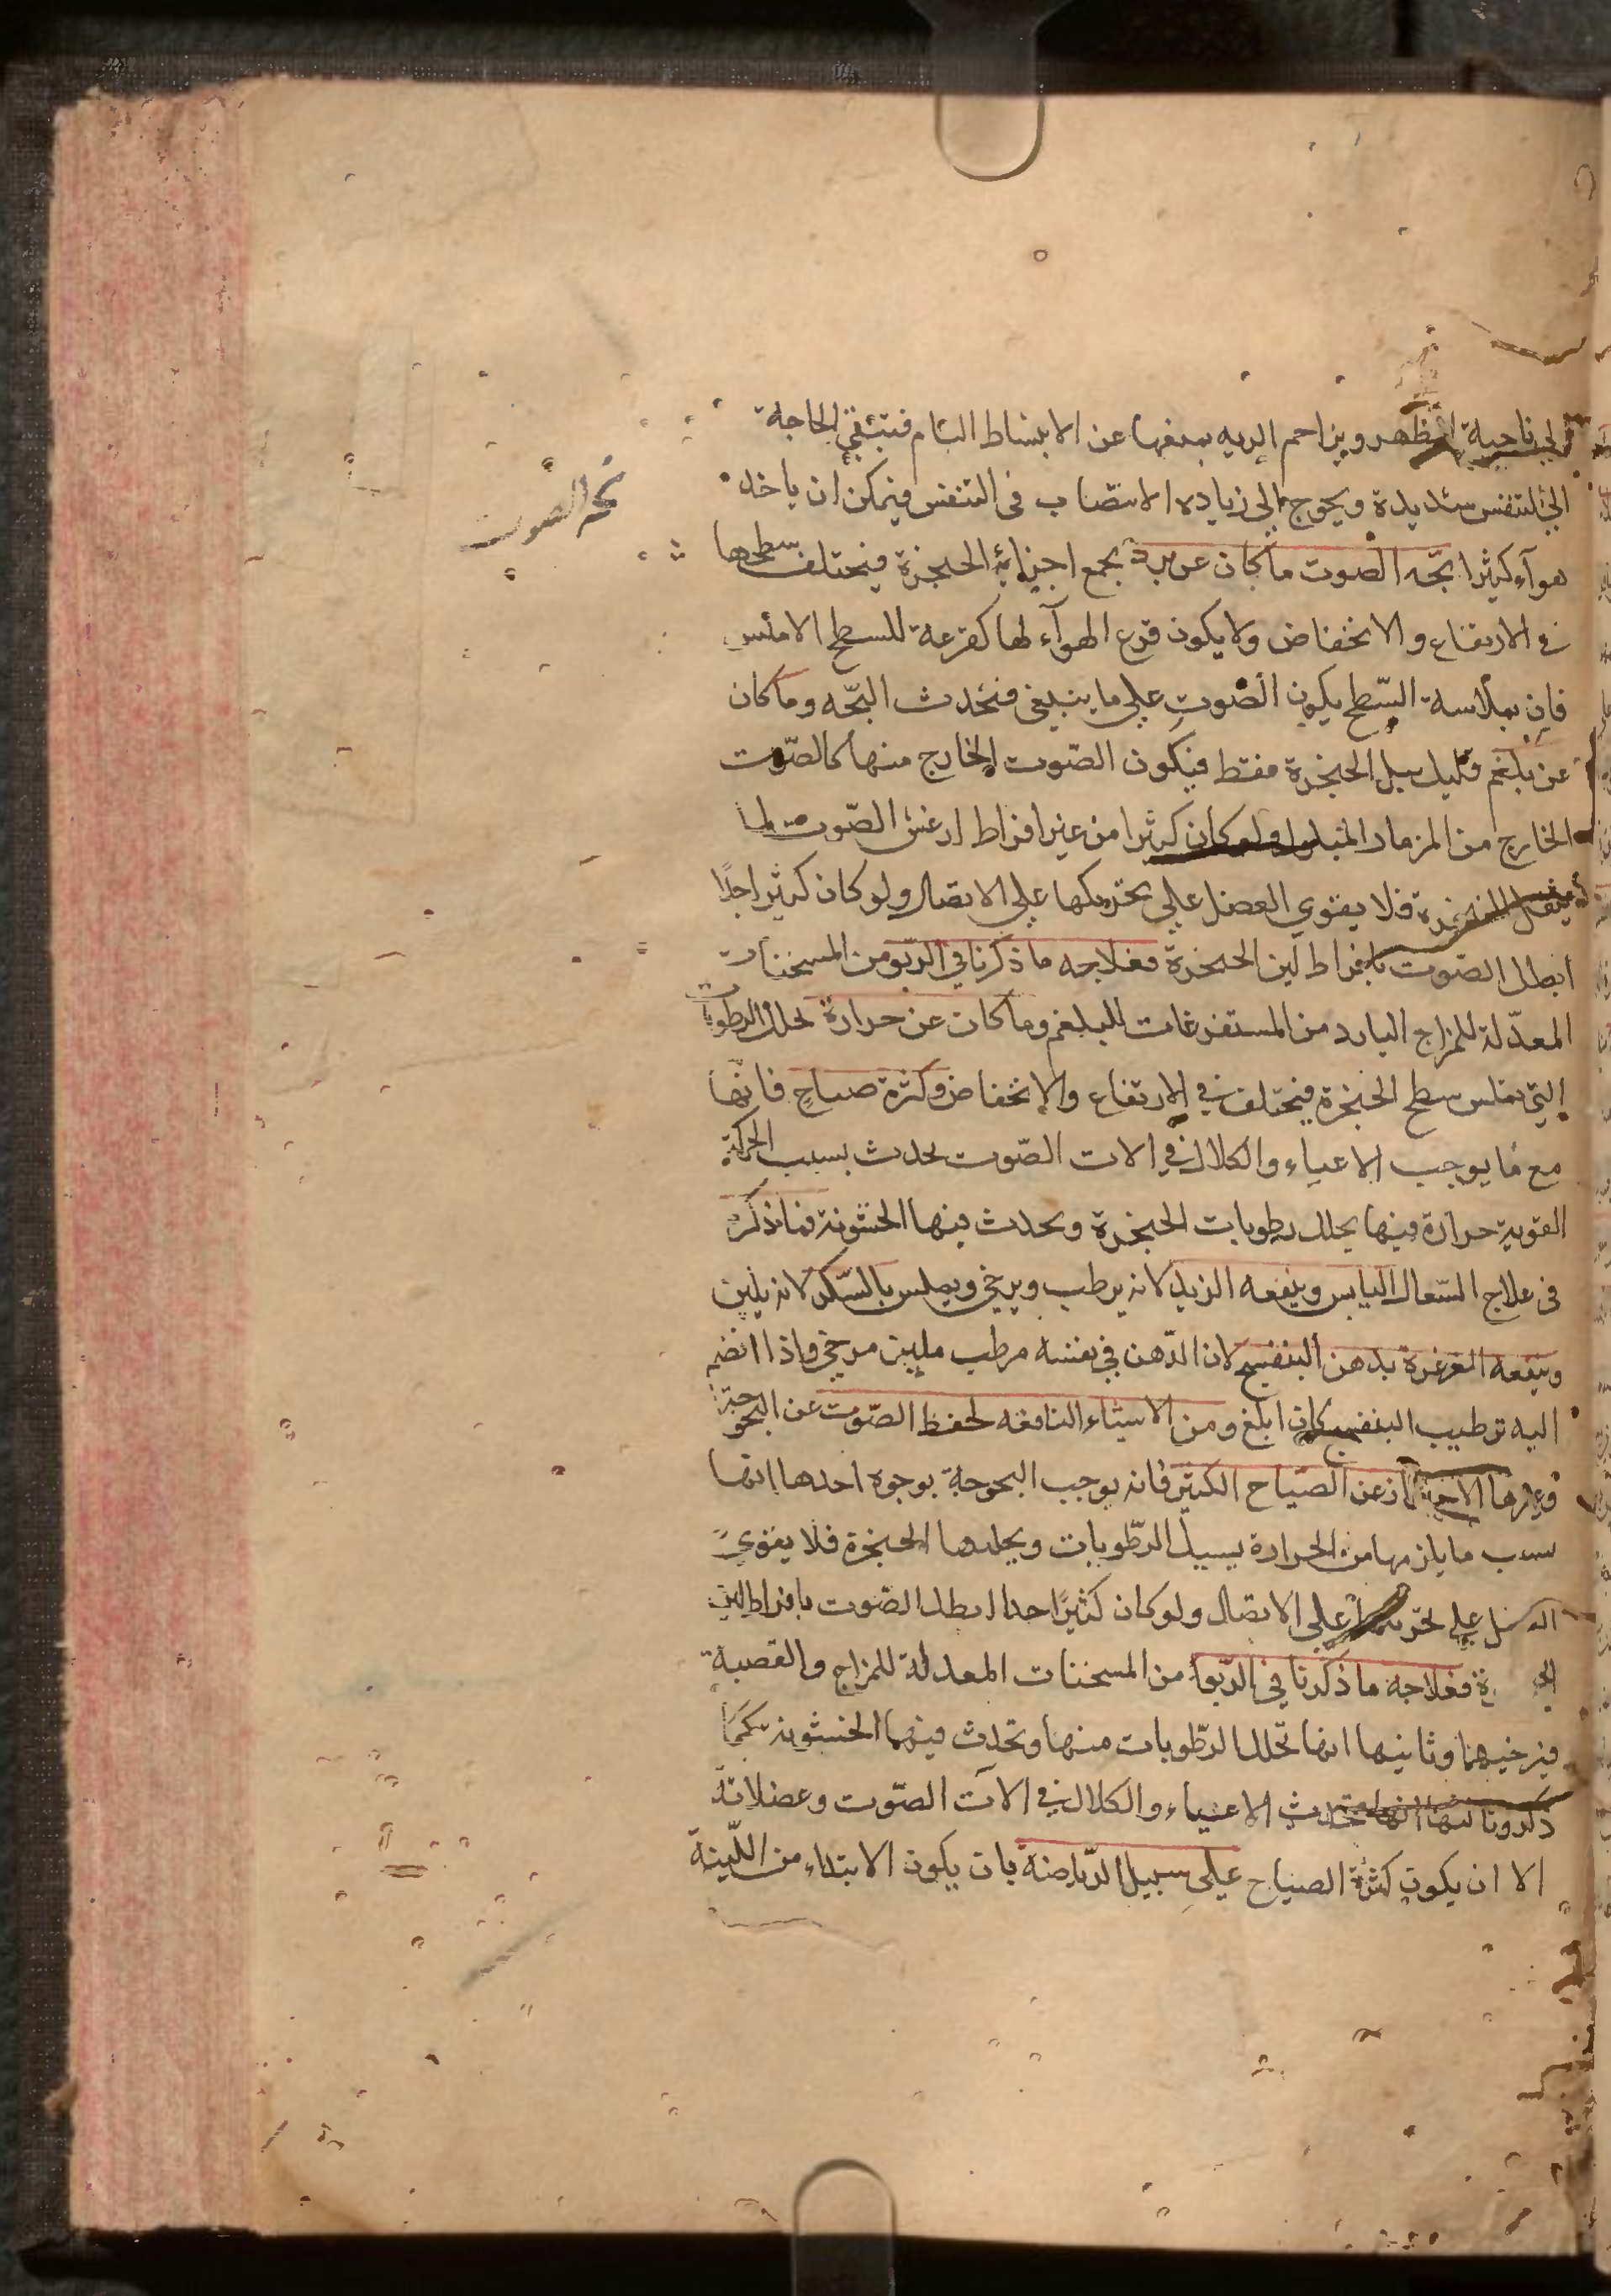 الى ناحية الظهر ويزاحم الريه بمنعها عن الانبساط التام فتبقي الحاجة
الى التنفس شديدة ويحوج الى زياده الانتصاب فى التنفس فيمكن ان ياخذ
هوآء كثيرا بحّه الصوت ما كان عن برد يجمع اجزاء الحنجرة فيختلف سطحها
بحه الصوت
في الارتفاع والانخفاض ولا يكون قرع الهوآء لها كقرعة للسطح الاملس
فان بملاسة السّطح يكون الصّوت على ما ينبغى فتحدث البحّه وما كان
عن بلغم قليل يبل الحنجرة فقط فيكون الصّوت الخارج منها كالصّوت
الخارج من المزمار المبلول ولو كان كثيرا من غير افراط ارعش الصّوت لما
يثقل الحنجرة فلا يقوي العضل على تحريكها على الاتصال ولو كان كثيرا جدًا
ابطل الصّوت بافراط لين الحنجرة فعلاجه ما ذكرنا في الرّبو من المسخنات
المعدّلة للمزاج البارد من المستفرغات للبلغم وما كان عن حرارة تحلل الرطوبات
التي تملس سطح الحنجرة فيختلف في الارتفاع والانخفاض وكثرة صياح فانّها
مع ما يوجب الاعياء والكلال في الات الصّوت يحدث بسبب الحركة
القوية حرارة فيها يحلل رطوبات الحنجرة ويحدث فيها الخشونة فما ذكر
فى علاج السّعال اليابس وينفعه الزبد لانه يرطب ويرخي ويملس بالسّكر لانه يلين
وينفعه الغرغرة بدهن البنفسج لان الدّهن في نفسه مرطب ملين مرخي واذا انضم
اليه ترطيب البنفسج كان ابلغ ومن الاشياء النافعه لحفظ الصّوت عن البحوحة
وغيرها الاحتراز عن الصّياح الكثير فانه يوجب البحوحة بوجوه احدها انها
بسبب ما يلزمها من الحرارة يسيل الرطّوبات ويحلها الحنجرة فلا يقوى
على تحريكها على الاتصال ولو كان كثيرًا جدا ابطل الصّوت بافراط لين
فعلاجه ما ذكرنا في الرّبو من المسخنات المعدلة للمزاج والقصبة
فيرخيهما وثانيها انها تحلل الرطّوبات منها وتحدث فيها الخشونه كما
ذكرونا ثالثها انها تحدث الاعياء والكلال في الآت الصّوت وعضلاته
الا ان يكون كثرة الصياح على سبيل الرّياضة بان يكون الابتداء من اللّينة